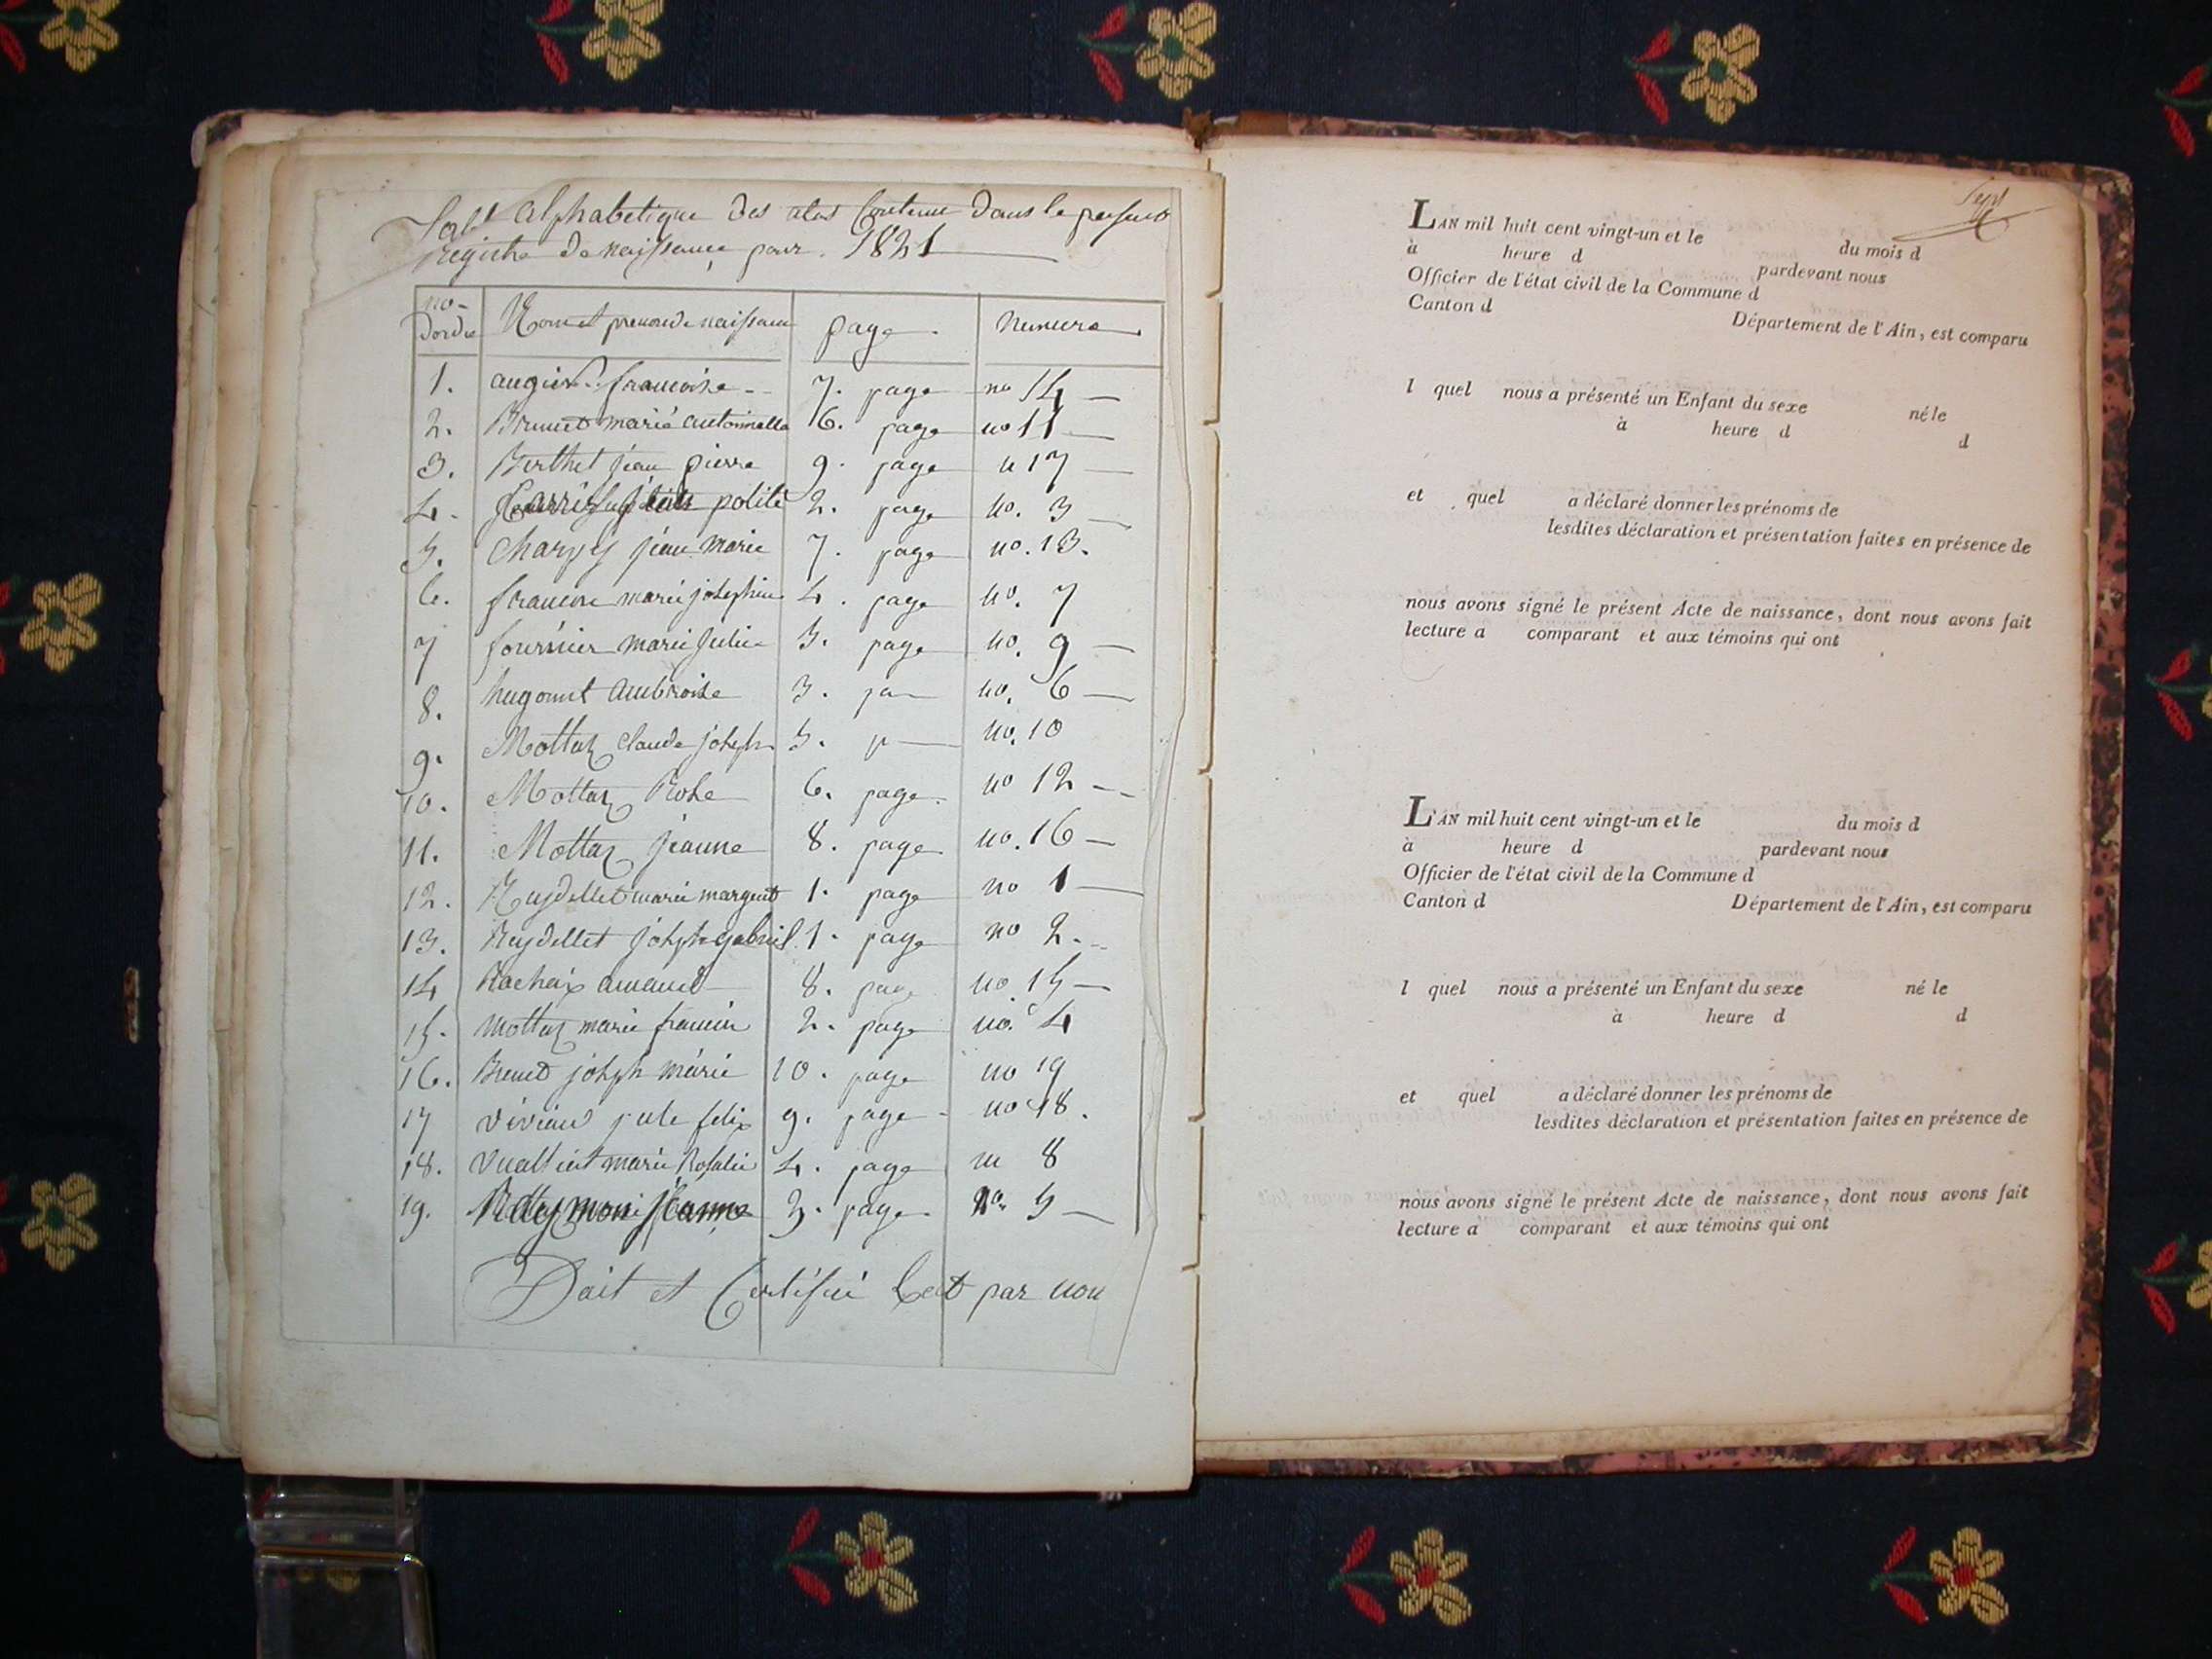 Table alphabetique des actes Contenu dans le present
registre de naissance pour 1821
no- dordre Nom et prenom de naissance page. numero
1. augier francoise 7. page no 14
2. Brunet marie antoinette 6. page no 11
3. Berthet jean pierre 9. page n 17
4. polite 2. page no. 3
5. Charvey jean marie 7. page no. 13.
6. francine marie josephine 4. page no. 7
7 fournier marie Julie 5. page no. 9
8. hugonet ambroise 3. pa no. 6
9. Mottaz Claude joseph 5. p no. 10
10. Mottaz Rose 6. page. no 12
11. Mottaz jeanne 8. page no. 16
12. Reydellet marie margerit 1. page no 1
13. Reydellet joseph gabriel 1. page no 2.
14 Rochaix amand 8. page no 15
15. Mottaz marie francin 2. page no. 4
16. Brunet joseph marie 10. page no 19
17 viviand jule felix 9. page no 18.
18. vuattiet marie Rosalie 4. page no 8
19. jeanne 3. page. no. 5
Dait et Certifié par nou
Sept
L'AN mil huit cent vingt-un et le du mois d
à heure d pardevant nous
Officier de l'état civil de la Commune d
Canton d Département de l'Ain, est comparu
l quel nous a présenté un Enfant du sexe né le
à heure d d
et quel a déclaré donner les prénoms de
lesdites déclaration et présentation faites en présence de
nous avons signé le présent Acte de naissance, dont nous avons fait
lecture a comparant et aux témoins qui ont
L'AN mil huit cent vingt-un et le du mois d
à heure d pardevant nous
Officier de l'état civil de la Commune d
Canton d Département de l'Ain, est comparu
l quel nous a présenté un Enfant du sexe né le
à heure d d
et quel a déclaré donner les prénoms de
lesdites déclaration et présentation faites en présence de
nous avons signé le présent Acte de naissance, dont nous avons fait
lecture a comparant et aux témoins qui ont